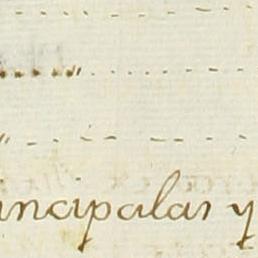 incipalas y